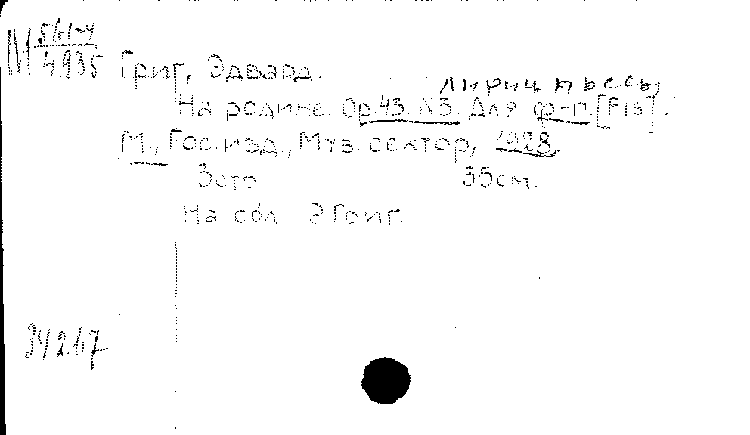 М 561-4
4935
Григ, Эдвард.
лирич пьесы,
На родине. Ор.43. №3. Для ф-п. [Fis].
М., Гос.изд., Муз. сектор, 1928.
3 стр 35 см.
На обл Э Григ.
34247